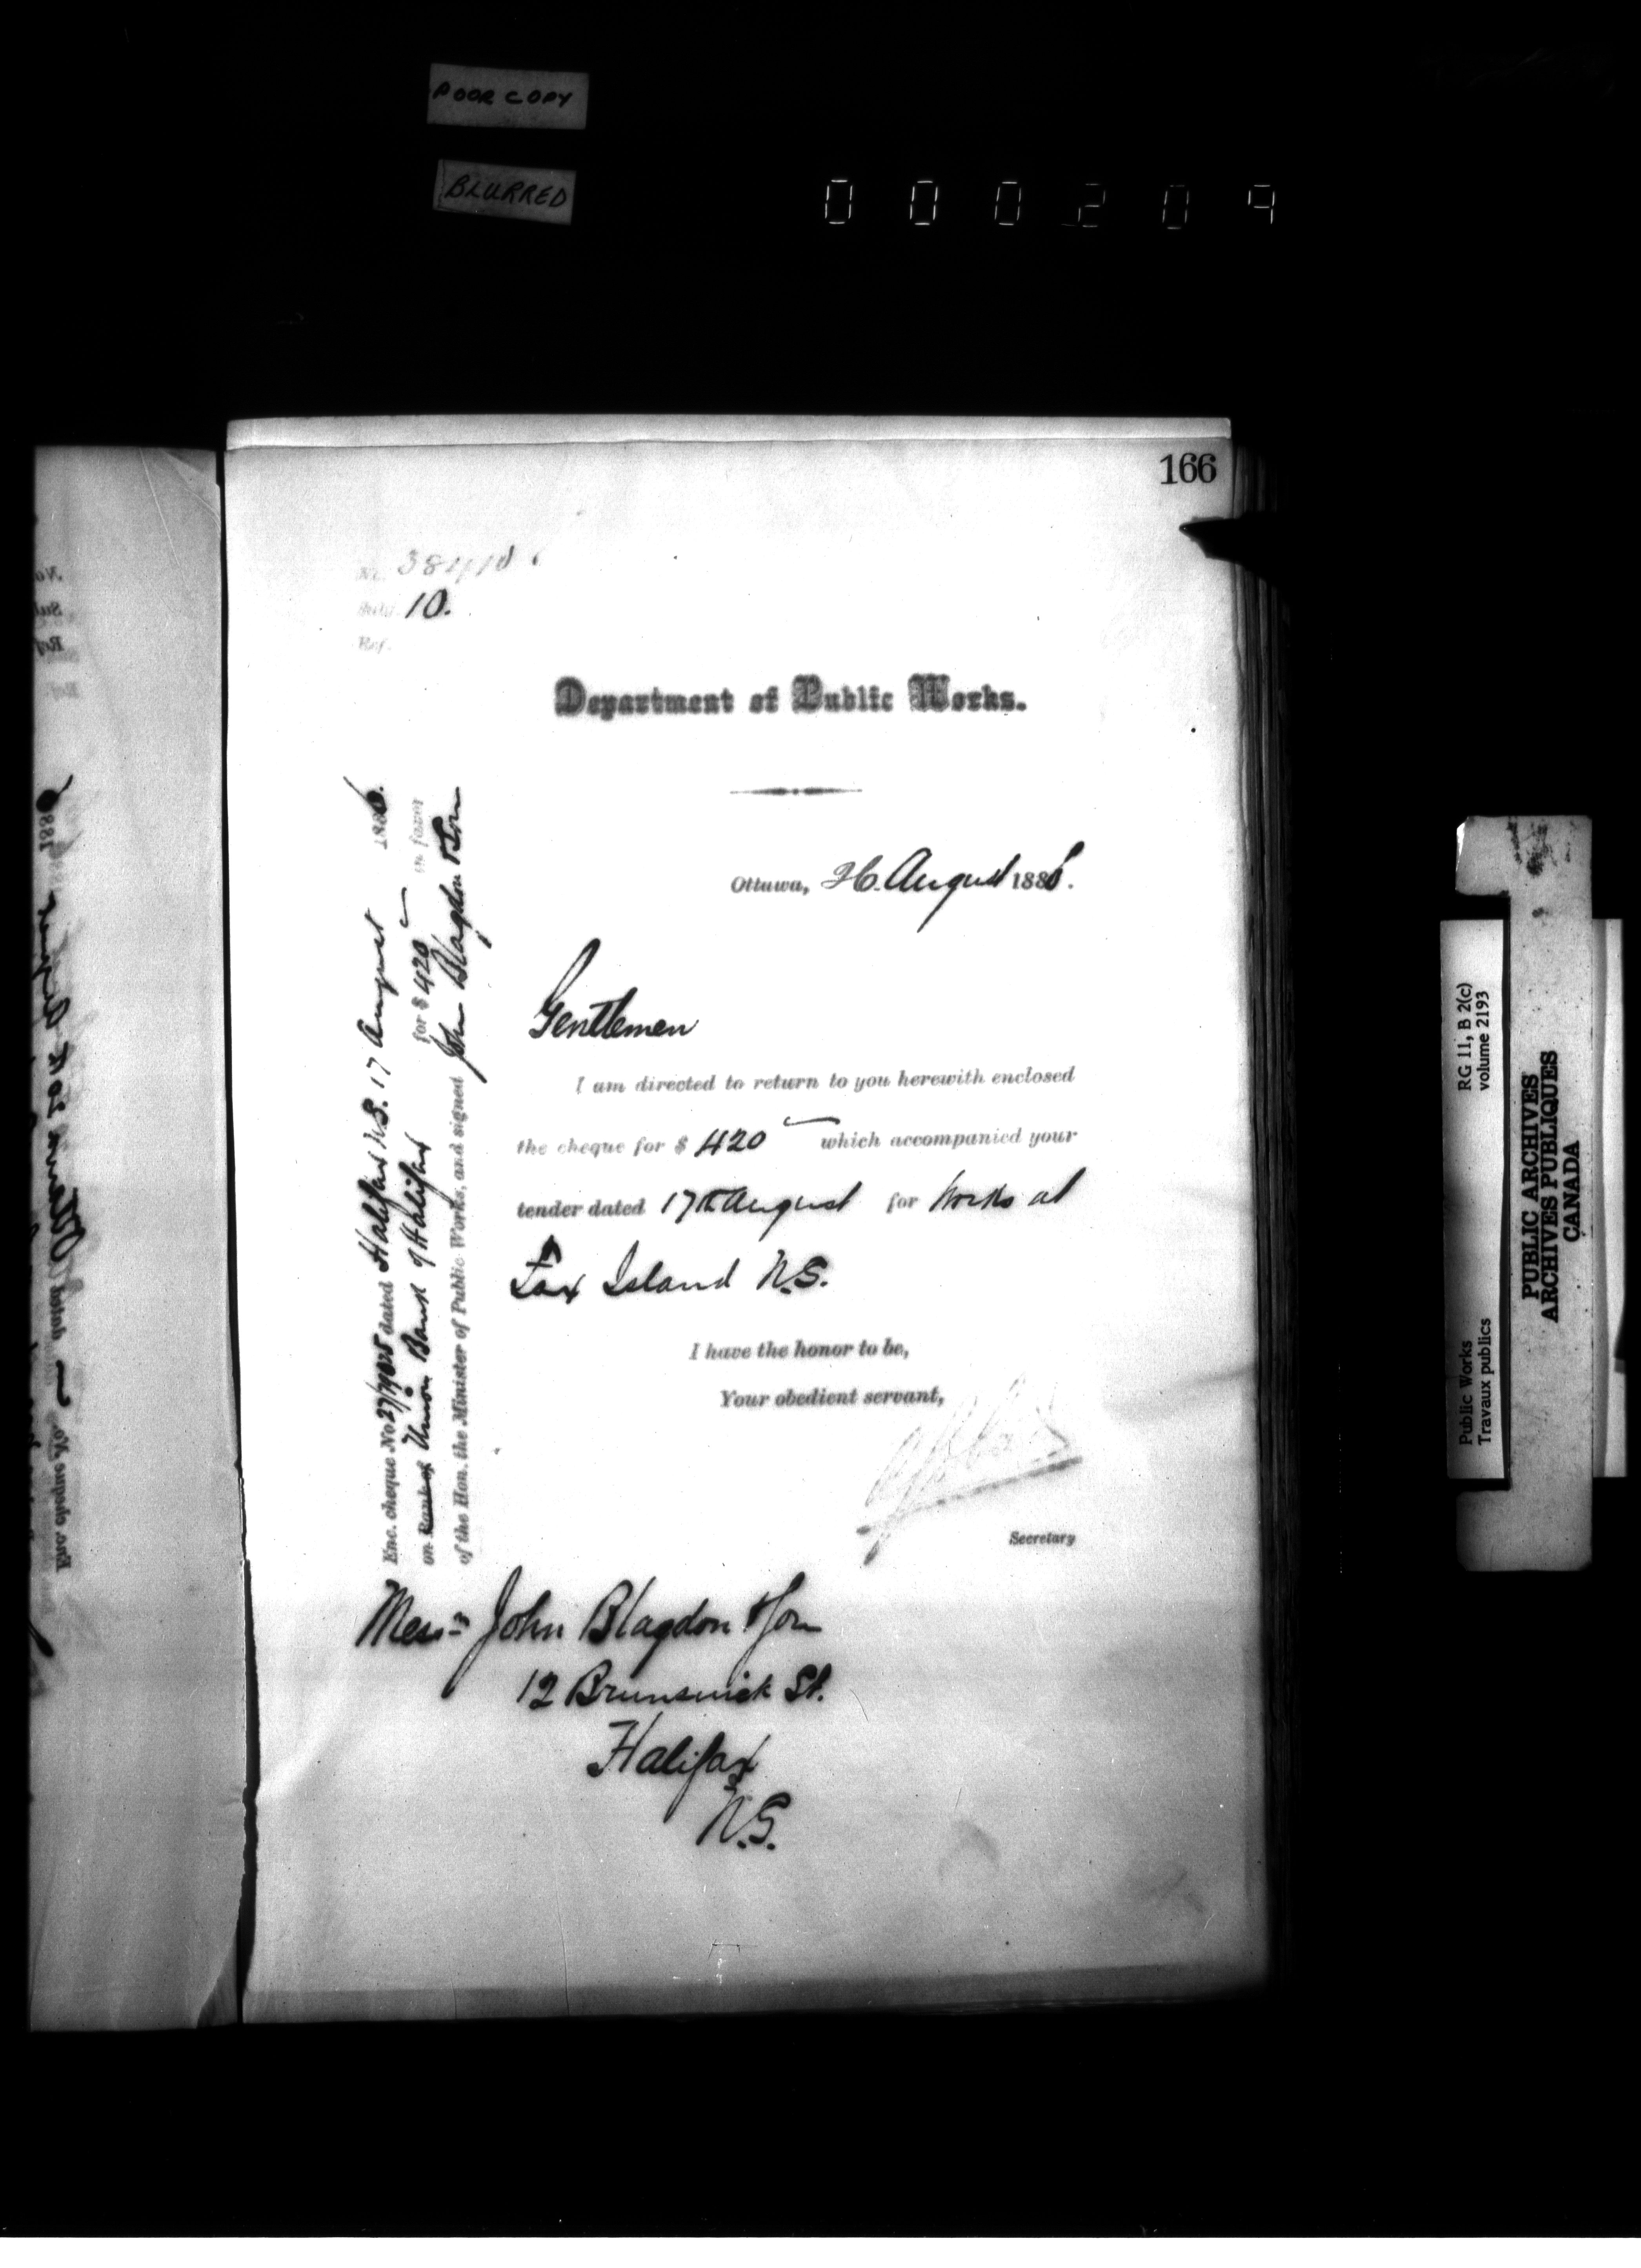 POOR COPY
BLURRED
000209
166
No.
Subj. 10.
Ref.
Department of Public Works.
Ottawa, 26. August 1886.
Gentlemen
I am directed to return to you herewith enclosed
the cheque for $ 420 which accompanied your
tender dated 17th August for Works at
Fox Island N.S.
I have the honor to be,
Your obedient servant,
Secretary
Messrs John Blagdon & Son
12 Brunswick St.
Halifax
N.S.
Enc. cheque No dated Halifax N.S. 17 August 1886.
on Bank of Union Bank of Halifax for $ 420 in favor
of the Hon. the Minister of Public Works, and signed John Blagdon & Son
Public Works RG 11, B 2(c)
Travaux publics volume 2193
PUBLIC ARCHIVES
ARCHIVES PUBLIQUES
CANADA